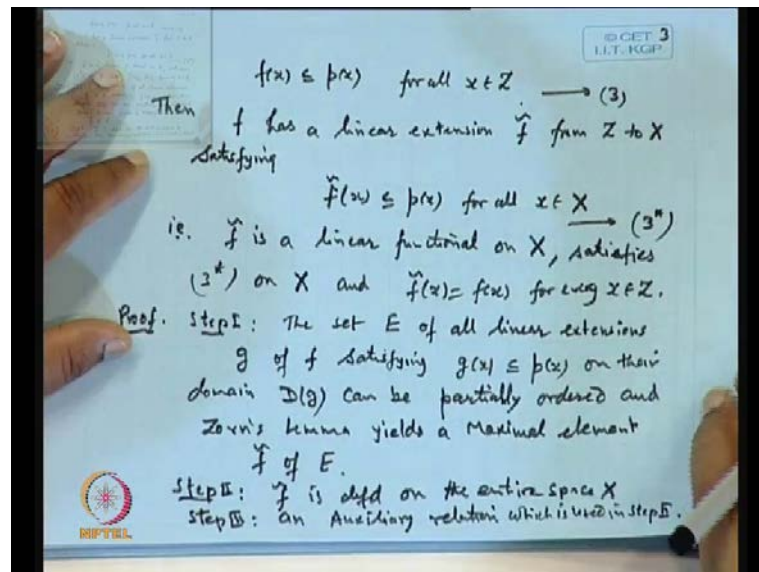 © CET 3
I.I.T. KGP
f(x) ≤ p(x) for all x ∈ Z. → (3)
Then
f has a linear extension f̃ from Z to X
satisfying
f̃(x) ≤ p(x) for all x ∈ X → (3*)
i.e. f̃ is a linear functional on X, satisfies
(3*) on X and f̃(x) = f(x) for every x ∈ Z.
Proof. Step I: The set E of all linear extensions
g of f satisfying g(x) ≤ p(x) on their
domain D(g) can be partially ordered and
Zorn's lemma yields a maximal element
f̃ of E.
Step II: f̃ is defd on the entire space X
Step III: an Auxiliary relation which is used in step II.
NPTEL